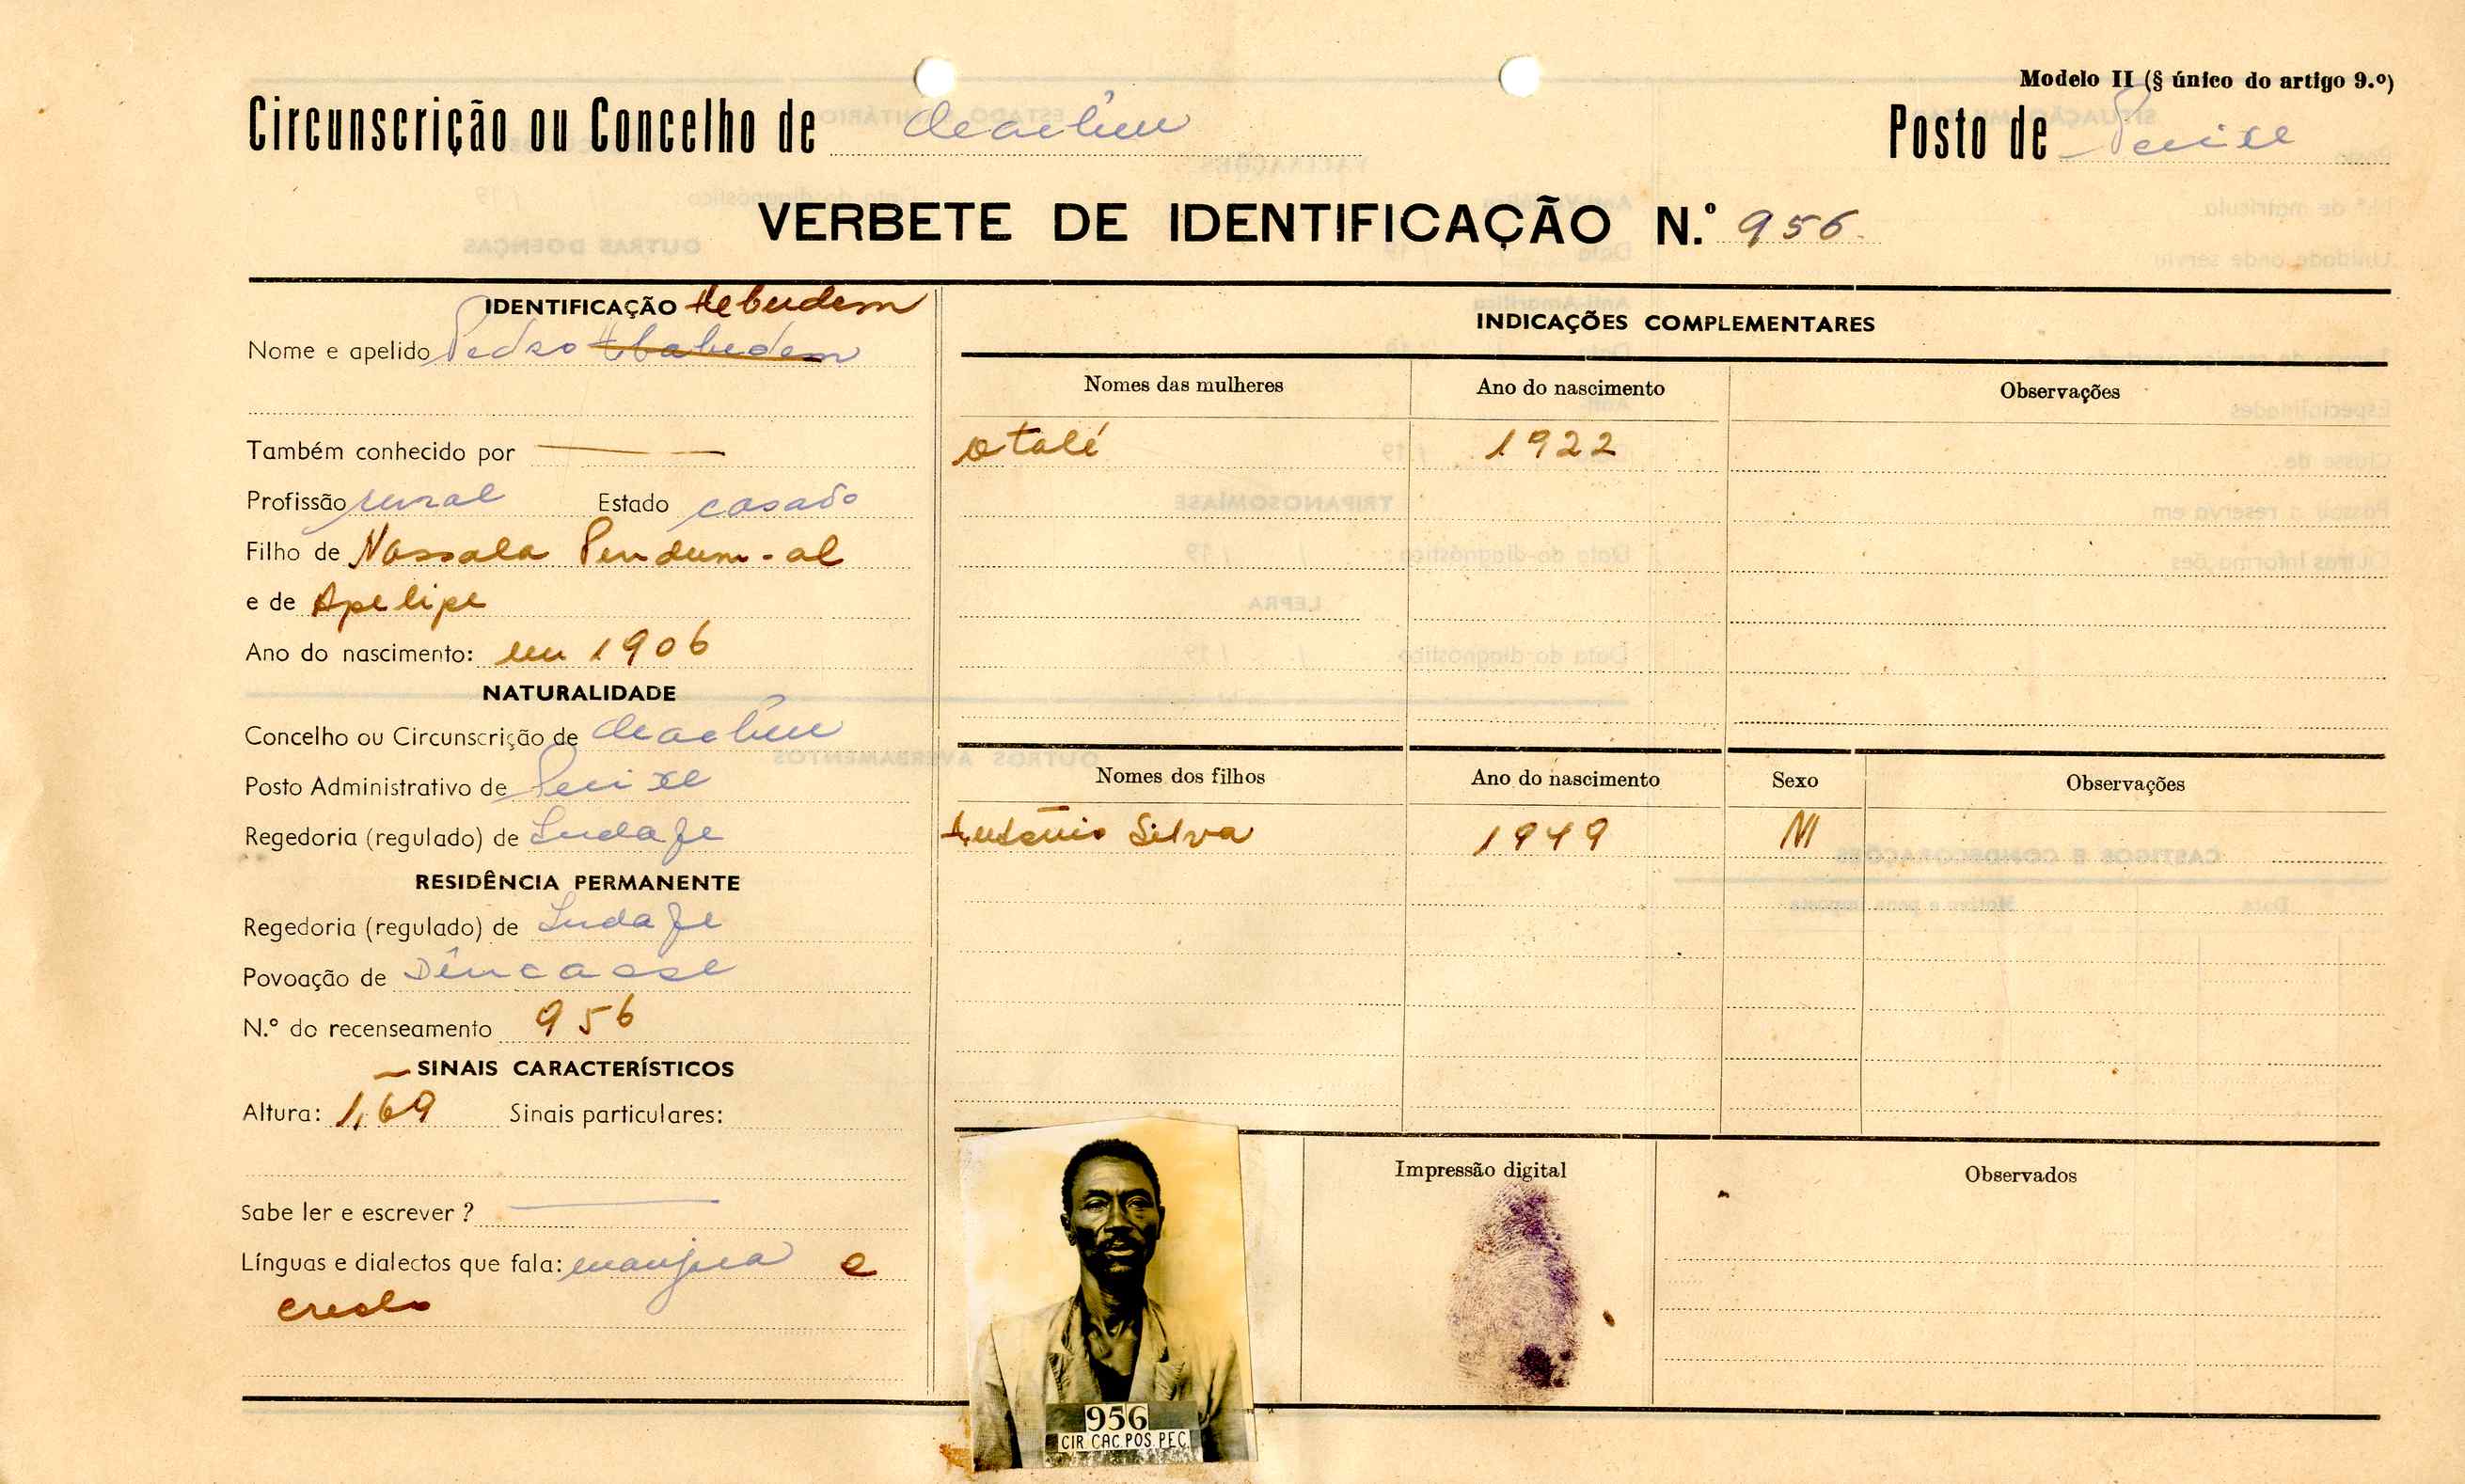 Modelo II (§ único do artigo 9.º)
Circunscrição ou Concelho de Cacheu
Posto de Pecixe
VERBETE DE IDENTIFICAÇÃO N.º 956
IDENTIFICAÇÃO
Nome e apelido Pedro
Também conhecido por —
Profissão rural Estado casado
Filho de Nassala Pendum-al
e de Apelipe
Ano do nascimento: em 1906
NATURALIDADE
Concelho ou Circunscrição de Cacheu
Posto Administrativo de Pecixe
Regedoria (regulado) de
RESIDÊNCIA PERMANENTE
Regedoria (regulado) de
Povoação de
N.º do recenseamento 956
SINAIS CARACTERÍSTICOS
Altura: 1,69 Sinais particulares:
Sabe ler e escrever? —
Línguas e dialectos que fala: manjaca e
creolo
INDICAÇÕES COMPLEMENTARES
Nomes das mulheres Ano do nascimento Observações
Otalé 1922
Nomes dos filhos Ano do nascimento Sexo Observações
António Silva 1949 M
Impressão digital
Observados
956
CIR. CAC. POS. PEC.